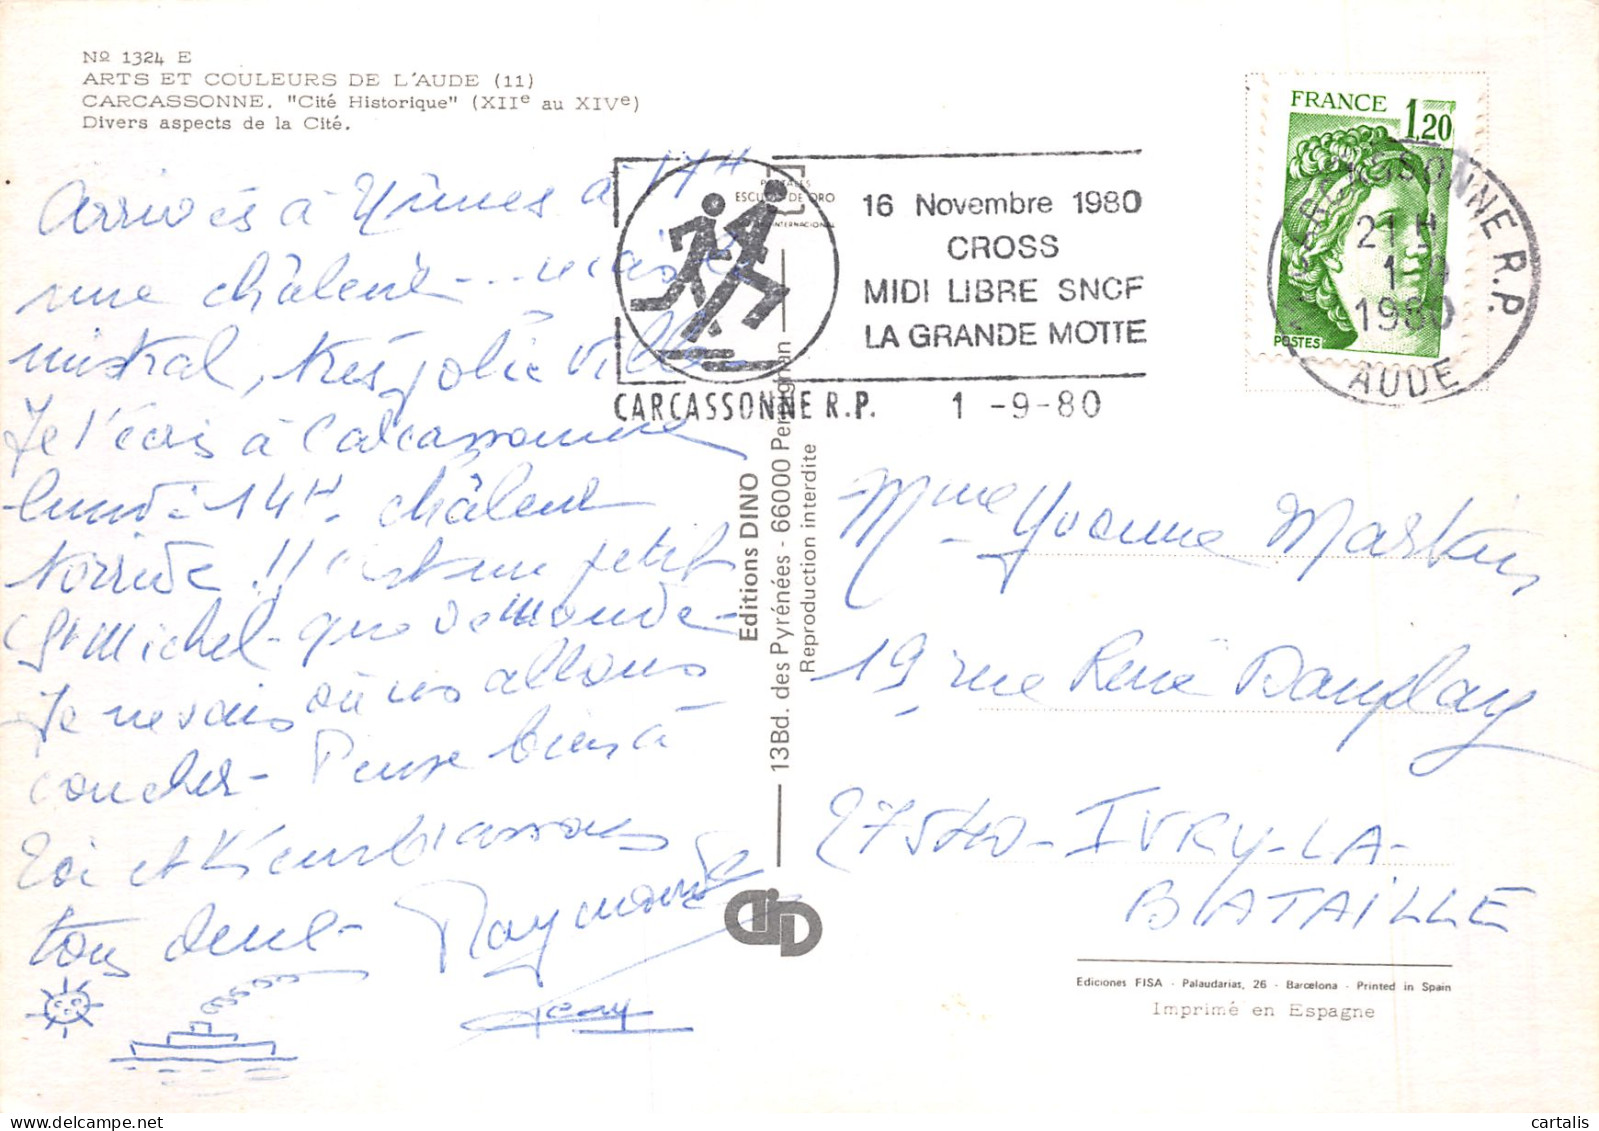 Nº 1324 E
ARTS ET COULEURS DE L'AUDE (11)
CARCASSONNE. "Cité Historique" (XIIe au XIVe)
Divers aspects de la Cité.
Arrivés à Nîmes à 17H
une châleur... mais
mistral, très jolie ville
Je t'écris à Carcassonne
lundi 14H. châleur
torride !! c'est un petit
St Michel - que de monde -
Je ne sais où ns allons
coucher - Pense bien à
toi et t'embrassons
tous deux - Raymonde
POSTALES
ESCUDO DE ORO
INTERNACIONAL
16 Novembre 1980
CROSS
MIDI LIBRE SNCF
LA GRANDE MOTTE
CARCASSONNE R.P. 1 -9-80
FRANCE 1,20
POSTES
CARCASSONNE R.P.
21 H
1 - 9
1980
AUDE
Editions DINO
13Bd. des Pyrénées - 66000 Perpignan
Reproduction interdite
Mme Yvonne Martin
19 rue René
27540 - IVRY-LA-
BATAILLE
Ediciones FISA - Palaudarias, 26 - Barcelona - Printed in Spain
Imprimé en Espagne
© cartalis
cartalis.com